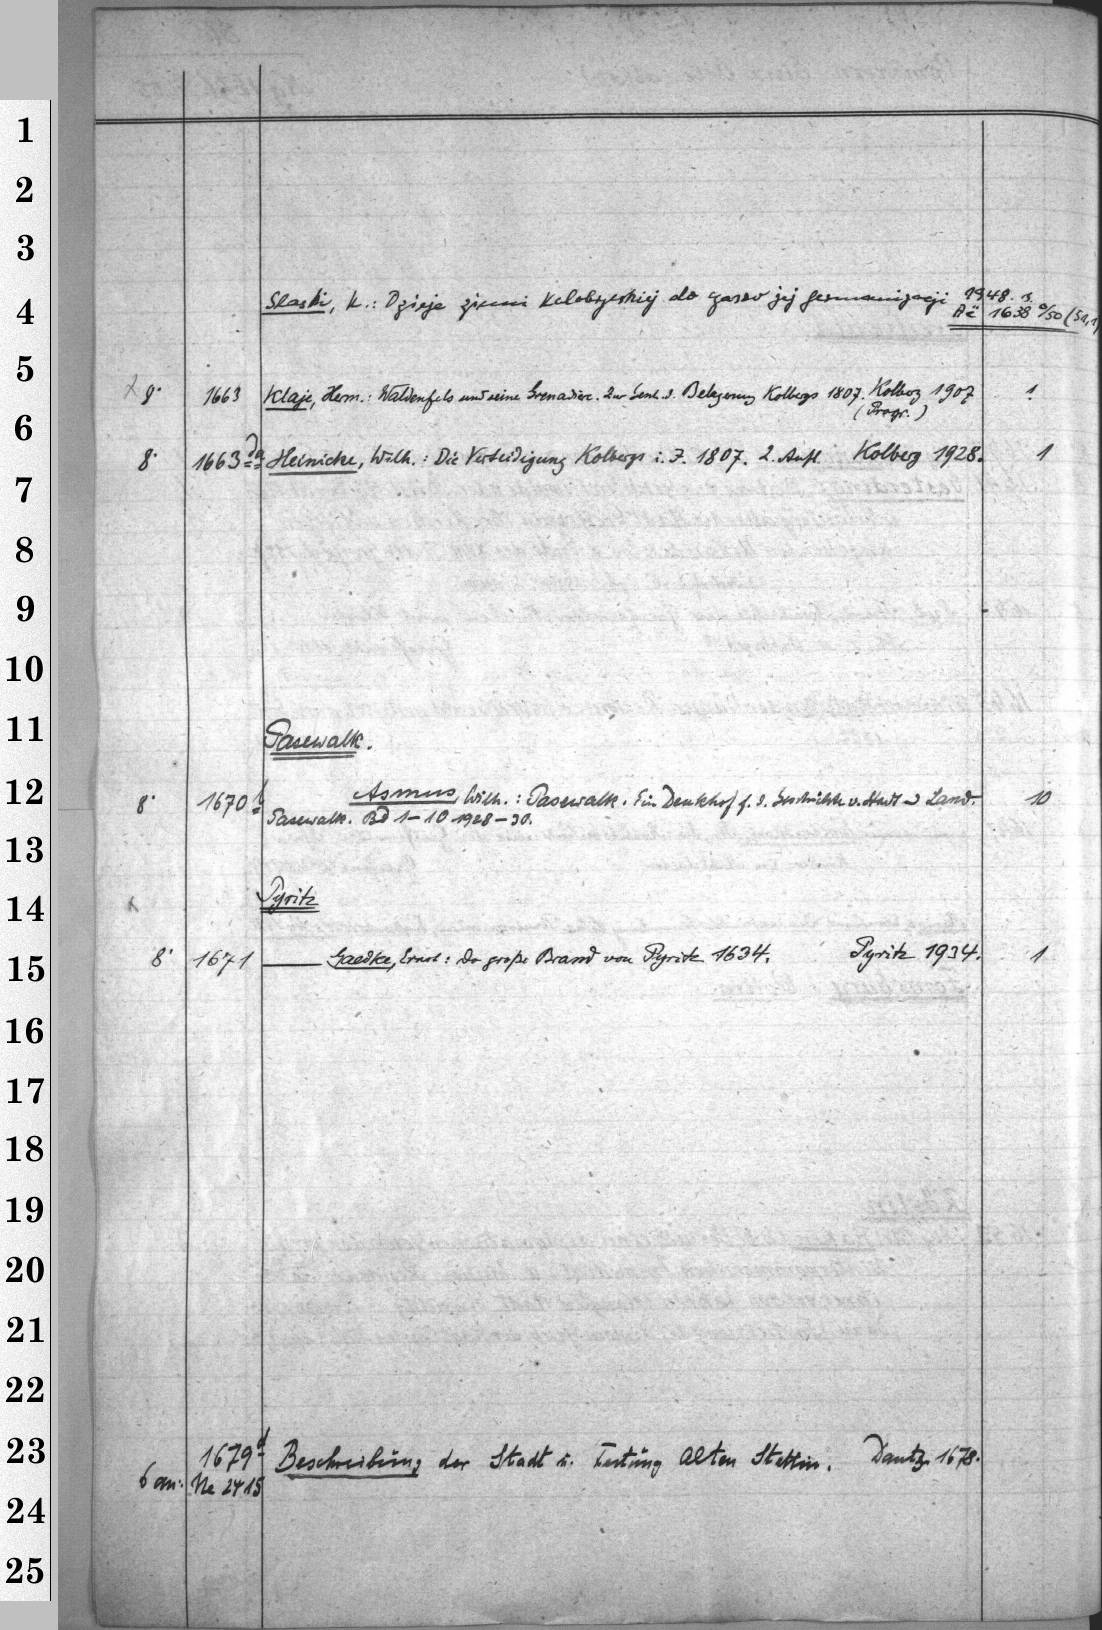 1
2
3
4
5
6
7
8
9
10
11
12
13
14
15
16
17
18
19
20
21
22
23
24
25
Slaski, K.: Dzieje ziemi kołobrzeskiej do czasów jej germanizacji 1948. 1.
Ac 1638 a/50 (51,1)
8° 1663 Klaje, Herm.: Waldenfels und seine Grenadiere. Zur Gesch. d. Belagerung Kolbergs 1807. Kolberg 1907 1
(Progr.)
8° 1663 da Heinicke, Wilh.: Die Verteidigung Kolbergs i. J. 1807. 2. Aufl. Kolberg 1928. 1
Pasewalk.
8° 1670 Asmus, Wilh.: Pasewalk. Ein Denkhof f. d. Geschichte v. Stadt u. Land. 10
Pasewalk. Bd 1-10 1928-30.
Pyritz
8° 1671 Gaedke, Ernst: Der große Brand von Pyritz 1634. Pyritz 1934. 1
1679 d Beschreibung der Stadt u. Festung Alten Stettin. Dantz. 1678.
6 an: Ne 2415